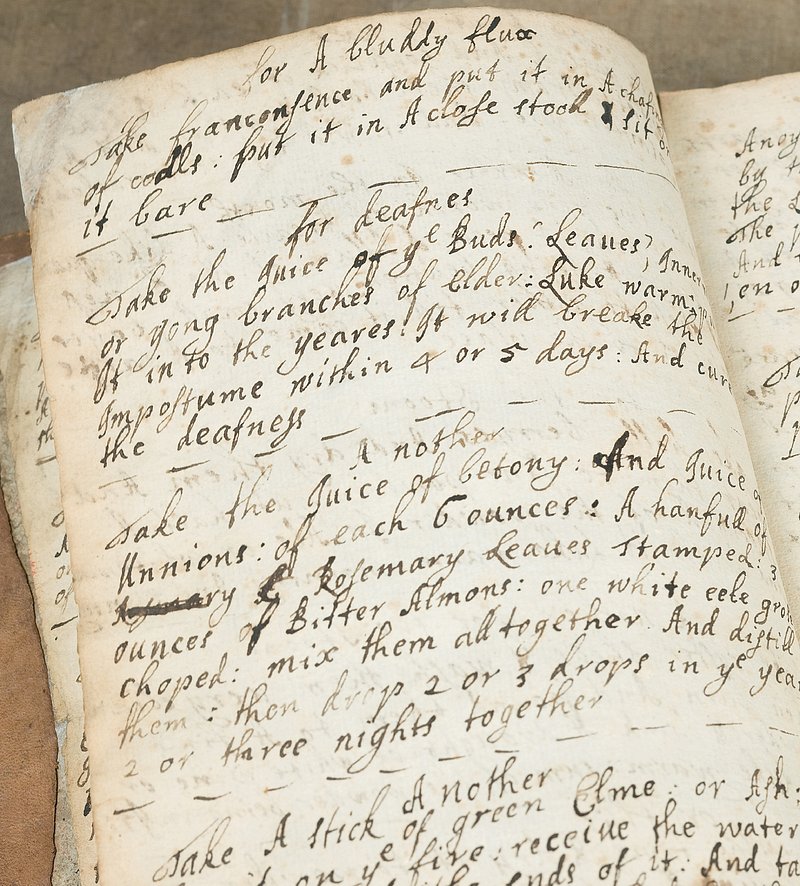 for A bluddy flux
Take franconsence and put it in A chaf
of coalls : put it in A close stool & sit o
it bare
for deafnes
Take the Juice of ye Buds : Leaves, Inner
or yong branches of elder : Luke warm
It in to the yeares : It will breake the
Impostume within 4 or 5 days : And cure
the deafness
A nother
Take the Juice of betony : And Juice
Unnions : of each 6 ounces : A hanfull of
Rosemary Leaves stamped : 3
ounces of Bitter Almons : one white eele gros
choped : mix them all together And distill
them : then drop 2 or 3 drops in ye year
2 or three nights together
A nother
Take A stick of green Elme : or Ash :
it on ye fire : receive the water
the ends of it : And ta
Anoy
by t
the L
The
And
en o